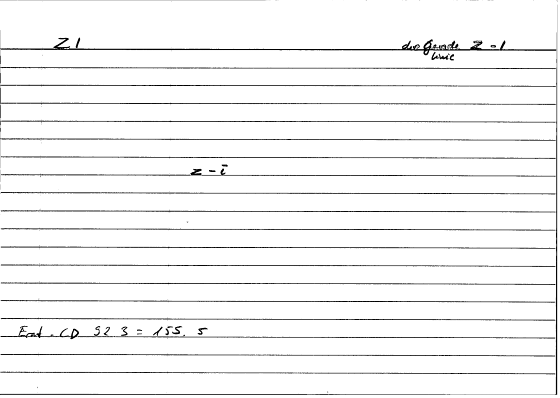 Z1
der Gerade Z-1
Linie
z-ī
Erat. CD 52 3 = 155. 5